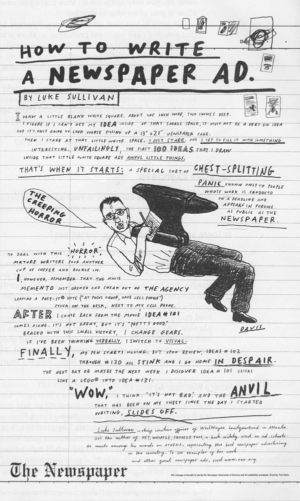 HOW TO WRITE
A NEWSPAPER AD.
BY LUKE SULLIVAN
I DRAW A LITTLE BLANK WHITE SQUARE. ABOUT ONE INCH WIDE, TWO INCHES DEEP.
I FIGURE IF I CAN'T GET MY IDEA INSIDE OF THAT SMALL SPACE, IT MUST NOT BE A VERY GOOD IDEA
AND IT'S NOT GOING TO LOOK
NEWSPAPER
THEN I STARE AT THAT LITTLE WHITE SPACE. I JUST STARE. AND I TRY TO FILL IT WITH SOMETHING
INTERESTING. UNFAILINGLY, THE FIRST 100 IDEAS THAT I DRAW
INSIDE THAT LITTLE WHITE SQUARE ARE AWFUL LITTLE THINGS.
THAT'S WHEN IT STARTS: A SPECIAL SORT OF CHEST-SPLITTING
PANIC KNOWN ONLY TO PEOPLE
WHOSE WORK IS PRODUCED
ON A DEADLINE AND
APPEARS IN FORUMS
AS PUBLIC AS THE
NEWSPAPER.
THE
CREEPING
HORROR
PANIC
TO DEAL WITH THIS "HORROR,"
MATURE WRITERS POUR ANOTHER
CUP OF COFFEE AND BUCKLE IN.
I, HOWEVER, REMEMBER THAT THE MOVIE
MEMENTO JUST OPENED AND SNEAK OUT OF THE AGENCY
LEAVING A POST-IT® NOTE
STUCK ON THE DESK, NEXT TO MY CELL PHONE.
AFTER I COME BACK FROM THE MOVIE IDEA #101
COMES ALONG. IT'S NOT GREAT, BUT IT'S "PRETTY GOOD."
ERASED WITH THIS SMALL VICTORY, I CHANGE GEARS.
IF I'VE BEEN THINKING VERBALLY, I SWITCH TO VISUAL.
FINALLY, MY PEN STARTS MOVING. BUT UPON REVIEW, IDEAS #102
THROUGH #130 ALL STINK AND I GO HOME IN DESPAIR.
THE NEXT DAY OR MAYBE THE NEXT WEEK I DISCOVER IDEA #101 CLICKS
LIKE A LEGO® INTO IDEA #131.
"WOW," I THINK. "IT'S NOT BAD." AND THE ANVIL
THAT HAS BEEN ON MY CHEST SINCE THE DAY I STARTED
WRITING, SLIDES OFF.
Luke Sullivan
The Newspaper